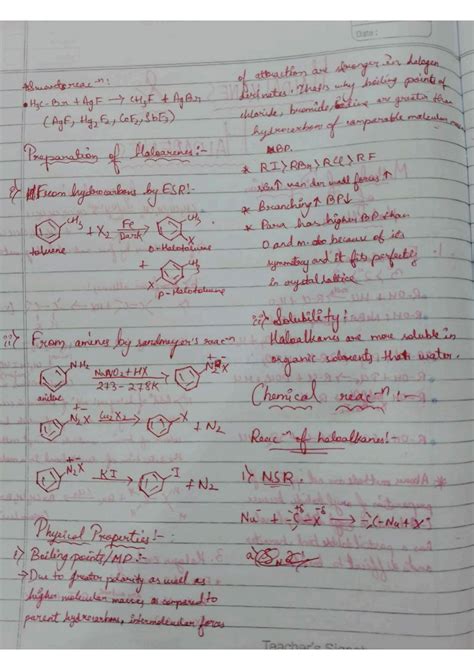 Date:
Swarts reacⁿ:
• H₃C-Br + AgF → CH₃F + AgBr
(AgF, Hg₂F₂, CoF₂, SbF₃)
Preparation of Haloarenes:-
i) From hydrocarbons by ESR!-
CH₃ + X₂ Fe Dark → CH₃ X
toluene O-Halotoluene
+ CH₃ X
P-Halotoluene
ii) From amines by sandmeyer's reacⁿ
NH₂ NaNO₂+HX 273-278K → N₂X
N₂X Cu₂X₂ → X + N₂
N₂X KI → I + N₂
Physical Properties!-
i) Boiling points/MP.:-
→ Due to greater polarity as well as
higher molecular masses as compared to
parent hydrocarbons, intermolecular forces
of attraction are stronger in halogen
derivatives. That's why boiling points of
chloride, bromide, iodine are greater than
hydrocarbon of comparable molecular mass
BP.
* RI > RBr > RCl > RF
van der wall forces ↑
* Branching ↑ BP ↓
* Para has higher BP than
O and m. do because of its
symmetry and it fits perfectly
in crystal lattice
ii) Solubility:
Haloalkanes are more soluble in
organic solvents than water.
Chemical reacⁿ!-
Reacⁿ of haloalkanes!-
1) NSR.
Nu⁻ + -C-X → -C-Nu + X⁻
a)
Teacher's Signat